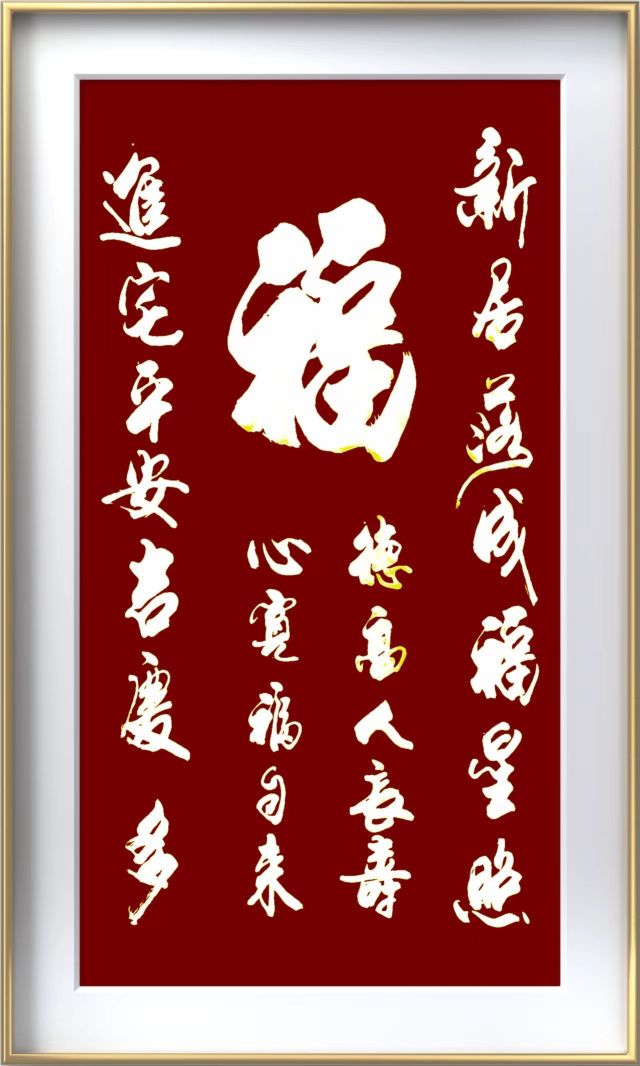 新居落成福星照
福
德高人長壽
心寬福自来
進宅平安吉慶多